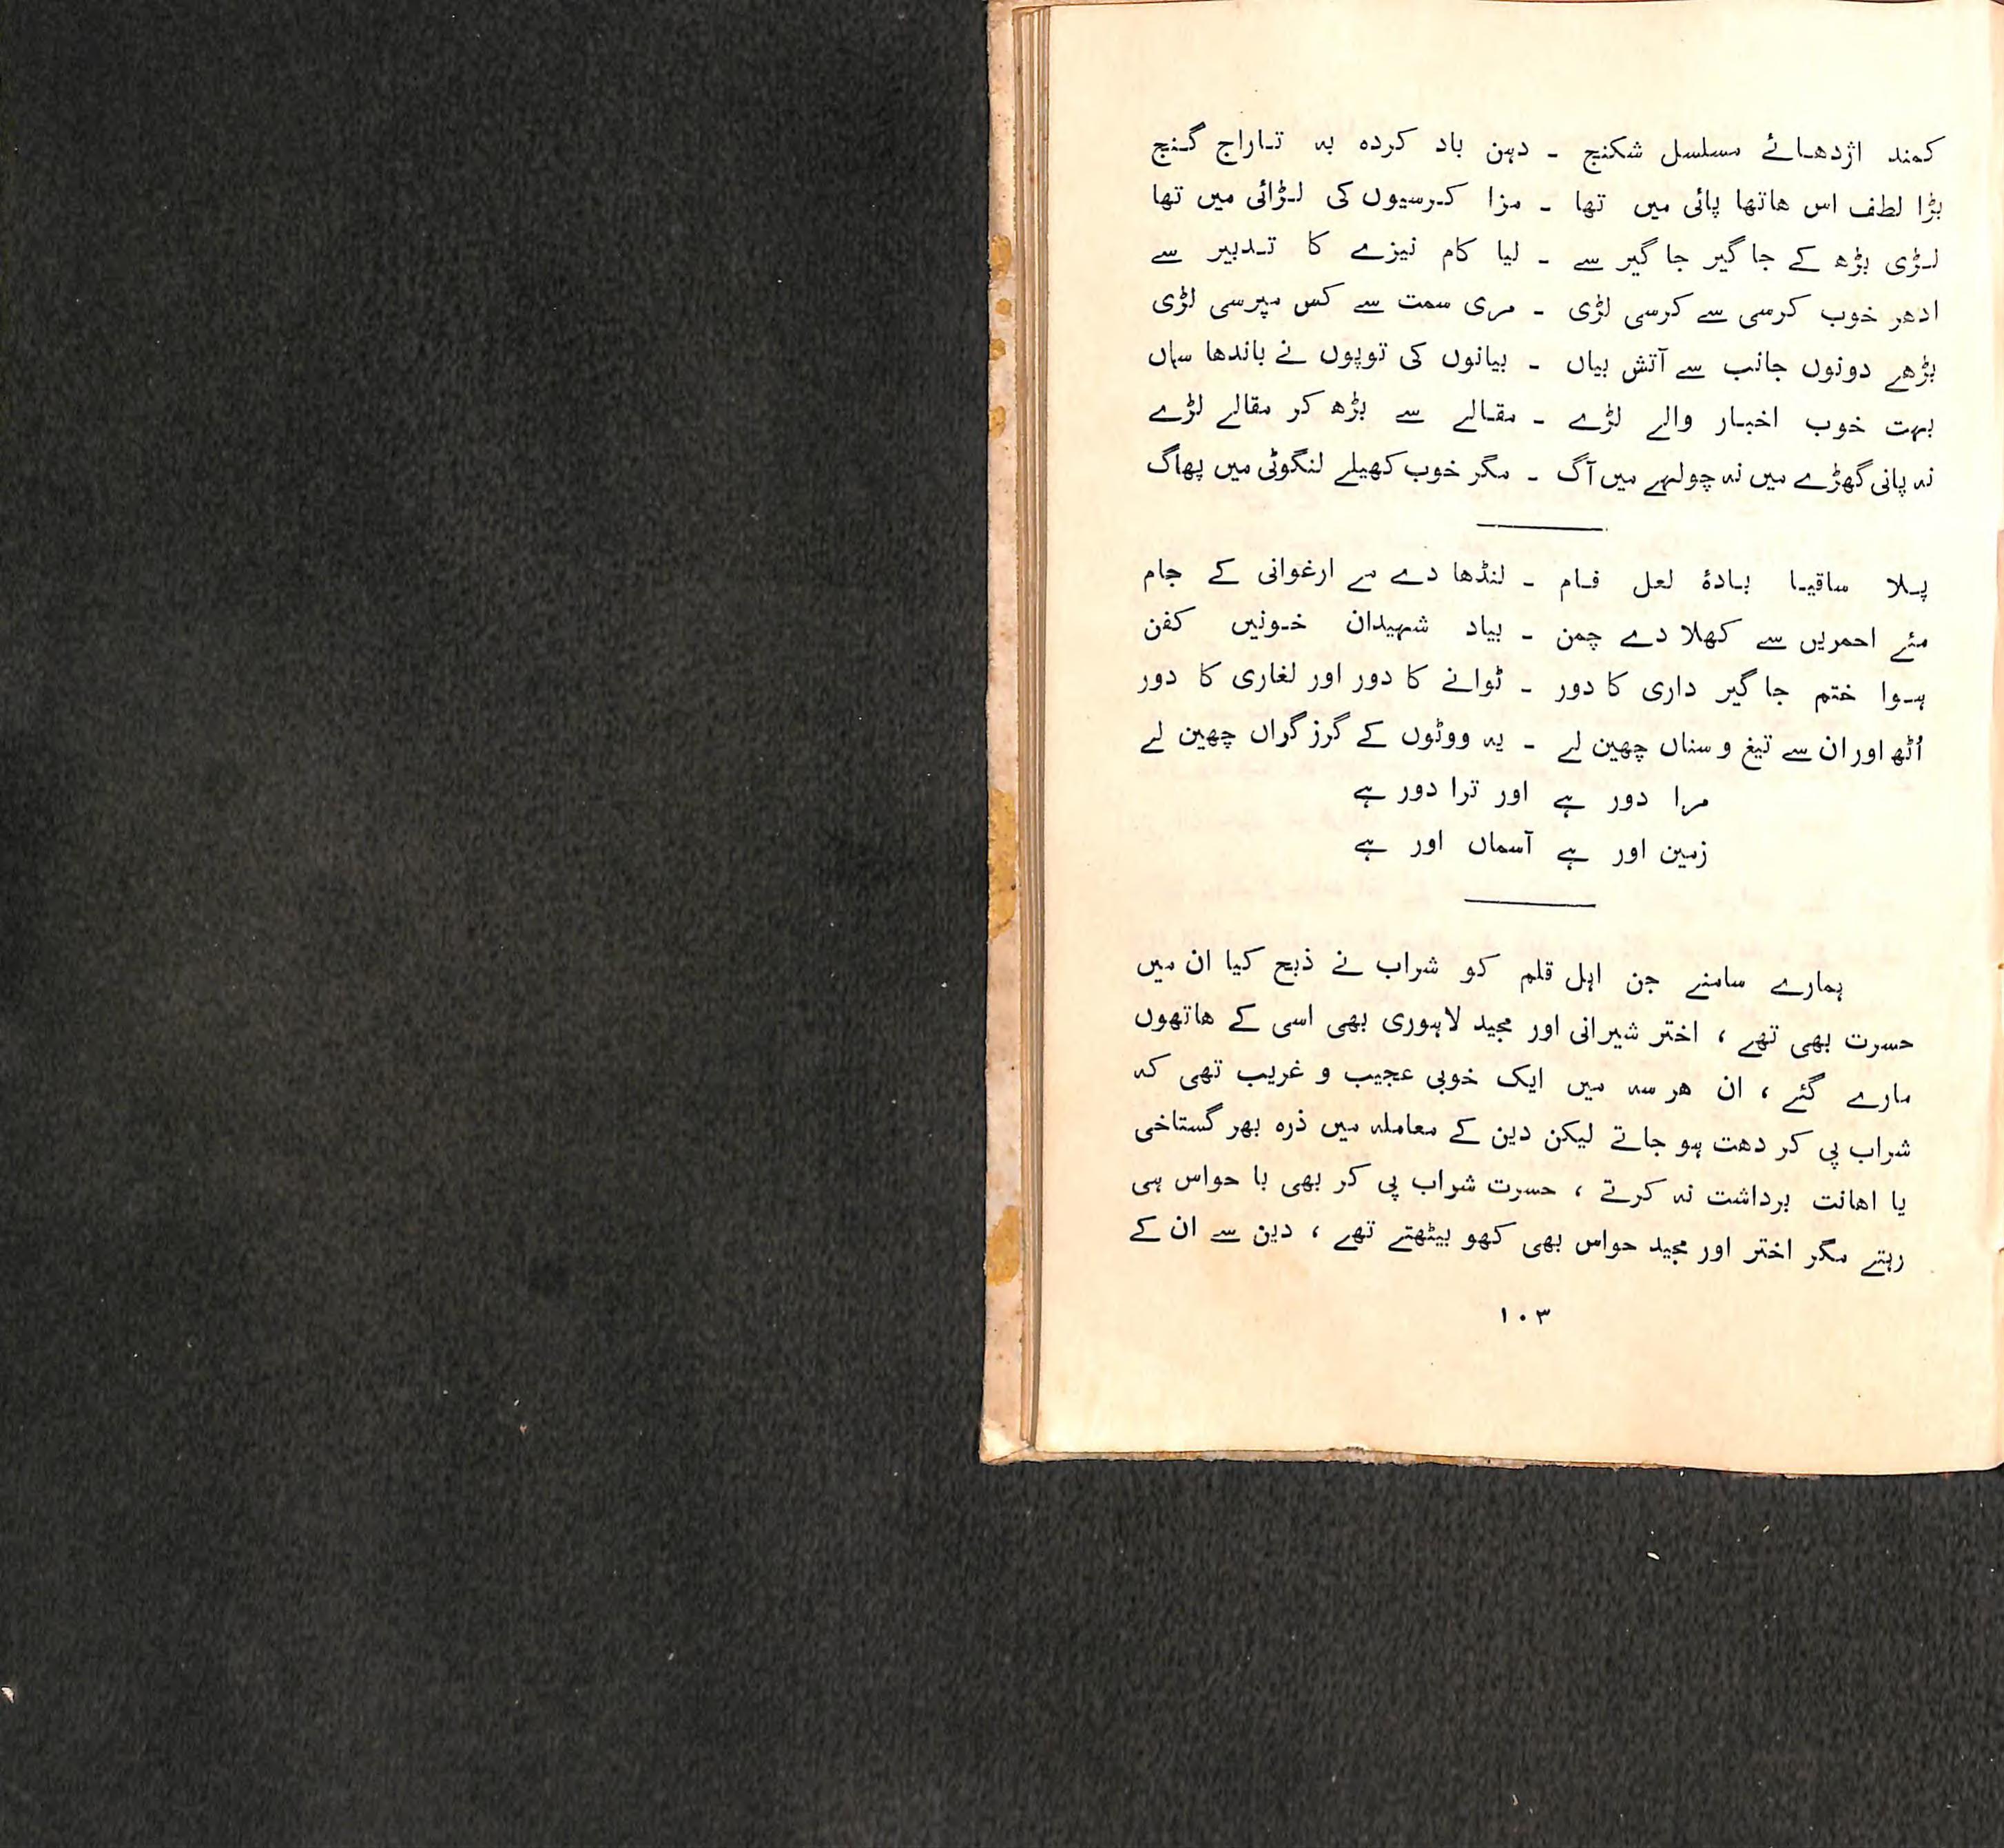 کمند اژدھائے مسلسل شکنج ۔ دہن باد کردہ بہ تاراج گنج
بڑا لطف اس ھاتھا پائی میں تھا ۔ مزا کرسیوں کی لڑائی میں تھا
لڑی بڑھ کے جاگیر جاگیر سے ۔ لیا کام نیزے کا تدبیر سے
ادھر خوب کرسی سے کرسی لڑی ۔ مری سمت سے کس مپرسی لڑی
بڑھے دونوں جانب سے آتش بیاں ۔ بیانوں کی توپوں نے باندھا سماں
بہت خوب اخبار والے لڑے ۔ مقالے سے بڑھ کر مقالے لڑے
نہ پانی گھڑے میں نہ چولہے میں آگ ۔ مگر خوب کھیلے لنگوٹی میں پھاگ
پلا ساقیا بادۂ لعل فام ۔ لنڈھا دے مے ارغوانی کے جام
مئے احمریں سے کھلا دے چمن ۔ بیاد شہیدان خونیں کفن
ہوا ختم جاگیر داری کا دور ۔ ٹوانے کا دور اور لغاری کا دور
اُٹھ اور ان سے تیغ و سناں چھین لے ۔ یہ ووٹوں کے گرز گراں چھین لے
مرا دور ہے اور ترا دور ہے
زمین اور ہے آسماں اور ہے
ہمارے سامنے جن اہل قلم کو شراب نے ذبح کیا ان میں
حسرت بھی تھے ، اختر شیرانی اور مجید لاہوری بھی اسی کے ھاتھوں
مارے گئے ، ان ھر سہ میں ایک خوبی عجیب و غریب تھی کہ
شراب پی کر دھت ہو جاتے لیکن دین کے معاملہ میں ذرہ بھر گستاخی
یا اھانت برداشت نہ کرتے ، حسرت شراب پی کر بھی با حواس ہی
رہتے مگر اختر اور مجید حواس بھی کھو بیٹھتے تھے ، دین سے ان کے
۱۰۳